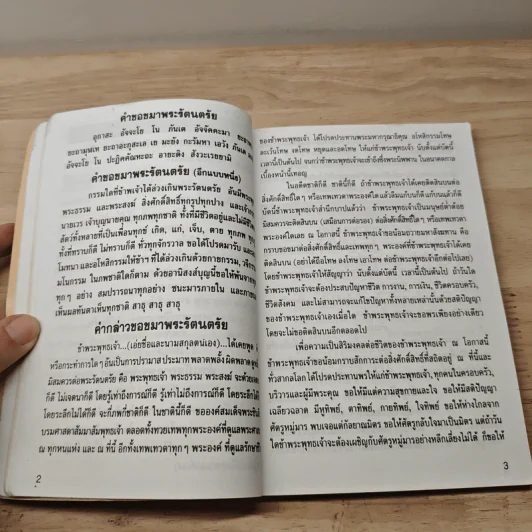 คำขอขมาพระรัตนตรัย
อุกาสะ อัจจะโย โน ภันเต อัจจัคคะมา
ยะถาพาเล ยะถาอะกุสะเล เย มะยัง กะรัมหา เอวัง ภันเต
อัจจะโย โน ปะฏิคคัณหะถะ อายะติง สังวะเรยยามิ
คำขอขมาพระรัตนตรัย (อีกแบบหนึ่ง)
กรรมใดที่ข้าพเจ้าได้ล่วงเกินพระรัตนตรัย อันมีพระ
พระธรรม และพระสงฆ์ สิ่งศักดิ์สิทธิ์ทุกรูปทุกนาม และเจ้า
นายเวร เจ้าบุญนายคุณ ทุกภพทุกชาติ ทั้งที่มีชีวิตอยู่และไม่มี
สัตว์ทั้งหลายที่เป็นเพื่อนทุกข์ เกิด, แก่, เจ็บ, ตาย ทุกภพ
ทั้งที่ทราบก็ดี ไม่ทราบก็ดี ทั่วทุกจักรวาล ขอได้โปรดมารับ
โมทนา และอโหสิกรรมให้ข้าฯ ที่ได้ล่วงเกินด้วยกายกรรม, วจี
มโนกรรม ในภพชาติใดก็ตาม ด้วยอานิสงส์บุญนี้ขอให้พ้นจาก
ทุกๆ อย่าง สมปรารถนาทุกอย่าง ชนะมารภายใน และภาย
เห็นผลทันตาเห็นทุกชาติ สาธุ สาธุ สาธุ
คำกล่าวขอขมาพระรัตนตรัย
ข้าพระพุทธเจ้า...(เอ่ยชื่อและนามสกุลตนเอง)...ได้เคยพูด
หรือกระทำการใดๆ อันเป็นการปรามาส ประมาท พลาดพลั้ง ผิดพลาด
มิสมควรต่อพระรัตนตรัย คือ พระพุทธเจ้า พระธรรม พระสงฆ์ จะด้วย
ก็ดี ไม่เจตนาก็ดี โดยรู้เท่าถึงการณ์ก็ดี โดยรู้เท่าไม่ถึงการณ์ก็ดี
โดยระลึกไม่ได้ก็ดี จะกี่ภพกี่ชาติก็ดี ในชาตินี้ก็ดี ขอองค์สมเด็จพระ
บรมศาสดาสัมมาสัมพุทธเจ้า ตลอดทั้งทวยเทพทุกพระองค์ที่ดูแลพระ
ณ ทุกหนแห่ง และ ณ ที่นี้ อีกทั้งเทพเทวดาทุกๆ พระองค์ ที่ดูแลรักษา
2
ของข้าพระพุทธเจ้า ได้โปรดประทานพระมหากรุณาธิคุณ อโหสิกรรมโทษ
ละเว้นโทษ งดโทษ หยุดและอดโทษ ให้แก่ข้าพระพุทธเจ้า นับตั้งแต่บัดนี้
เวลานี้เป็นต้นไป จนกว่าข้าพระพุทธเจ้าจะเข้าถึงซึ่งพระนิพพาน ในอนาคตกาล
เบื้องหน้านี้เทอญ
ในอดีตชาติก็ดี ชาตินี้ก็ดี ถ้าข้าพระพุทธเจ้าได้เคยติดสินบนต่อ
สิ่งศักดิ์สิทธิ์ใดๆ หรือเทพเทวดาพระองค์ใด แล้วลืมแก้บนก็ดี แก้บนแล้วก็ดี
บัดนี้ข้าพระพุทธเจ้าสำนึกบาปแล้วว่า ข้าพระพุทธเจ้าเป็นมนุษย์ต่ำต้อย
มิสมควรจะติดสินบน (เสมือนการต่อรอง) ต่อสิ่งศักดิ์สิทธิ์ใดๆ หรือเทพเทวดา
พระองค์ใดเลย ณ โอกาสนี้ ข้าพระพุทธเจ้าขอน้อมถวายมหาสังฆทาน คือ
กราบขอขมาต่อสิ่งศักดิ์สิทธิ์และเทพทุกๆ พระองค์ที่ข้าพระพุทธเจ้าได้เคย
ติดสินบน (อย่าได้ถือโทษ ลงโทษ เอาโทษ ต่อข้าพระพุทธเจ้าอีกต่อไปเลย)
โดยข้าพระพุทธเจ้าให้สัจวาจาว่า นับตั้งแต่บัดนี้ เวลานี้เป็นต้นไป ถ้าวันใด
ข้าพระพุทธเจ้าจะต้องประสบปัญหาชีวิต การงาน, การเงิน, ชีวิตครอบครัว,
ชีวิตสังคม และไม่สามารถจะแก้ไขปัญหาทั้งหลายเหล่านั้นด้วยสติปัญญา
ของข้าพระพุทธเจ้าเองเมื่อใด ข้าพระพุทธเจ้าก็จะขอพรเพียงอย่างเดียว
โดยจะไม่ขอติดสินบนอีกตลอดไป
เพื่อความเป็นสิริมงคลต่อชีวิตของข้าพระพุทธเจ้า ณ โอกาสนี้
ข้าพระพุทธเจ้าขอน้อมกราบสักการะต่อสิ่งศักดิ์สิทธิ์ที่สถิตอยู่ ณ ที่นี้และ
ทั่วสากลโลก ได้โปรดประทานพรให้แก่ข้าพระพุทธเจ้า, ทุกคนในครอบครัว,
บริวารและผู้มีพระคุณ ขอให้มีแต่ความสุขกายและใจ ขอให้มีสติปัญญา
เฉลียวฉลาด มีหูทิพย์, ตาทิพย์, กายทิพย์, ใจทิพย์ ขอให้ห่างไกลจาก
ศัตรูหมู่มาร พบเจอแต่กัลยาณมิตร ขอให้ศัตรูกลับใจมาเป็นมิตร แต่ถ้าวัน
ใดข้าพระพุทธเจ้าจะต้องเผชิญกับศัตรูหมู่มารอย่างหลีกเลี่ยงไม่ได้ ก็ขอให้
3